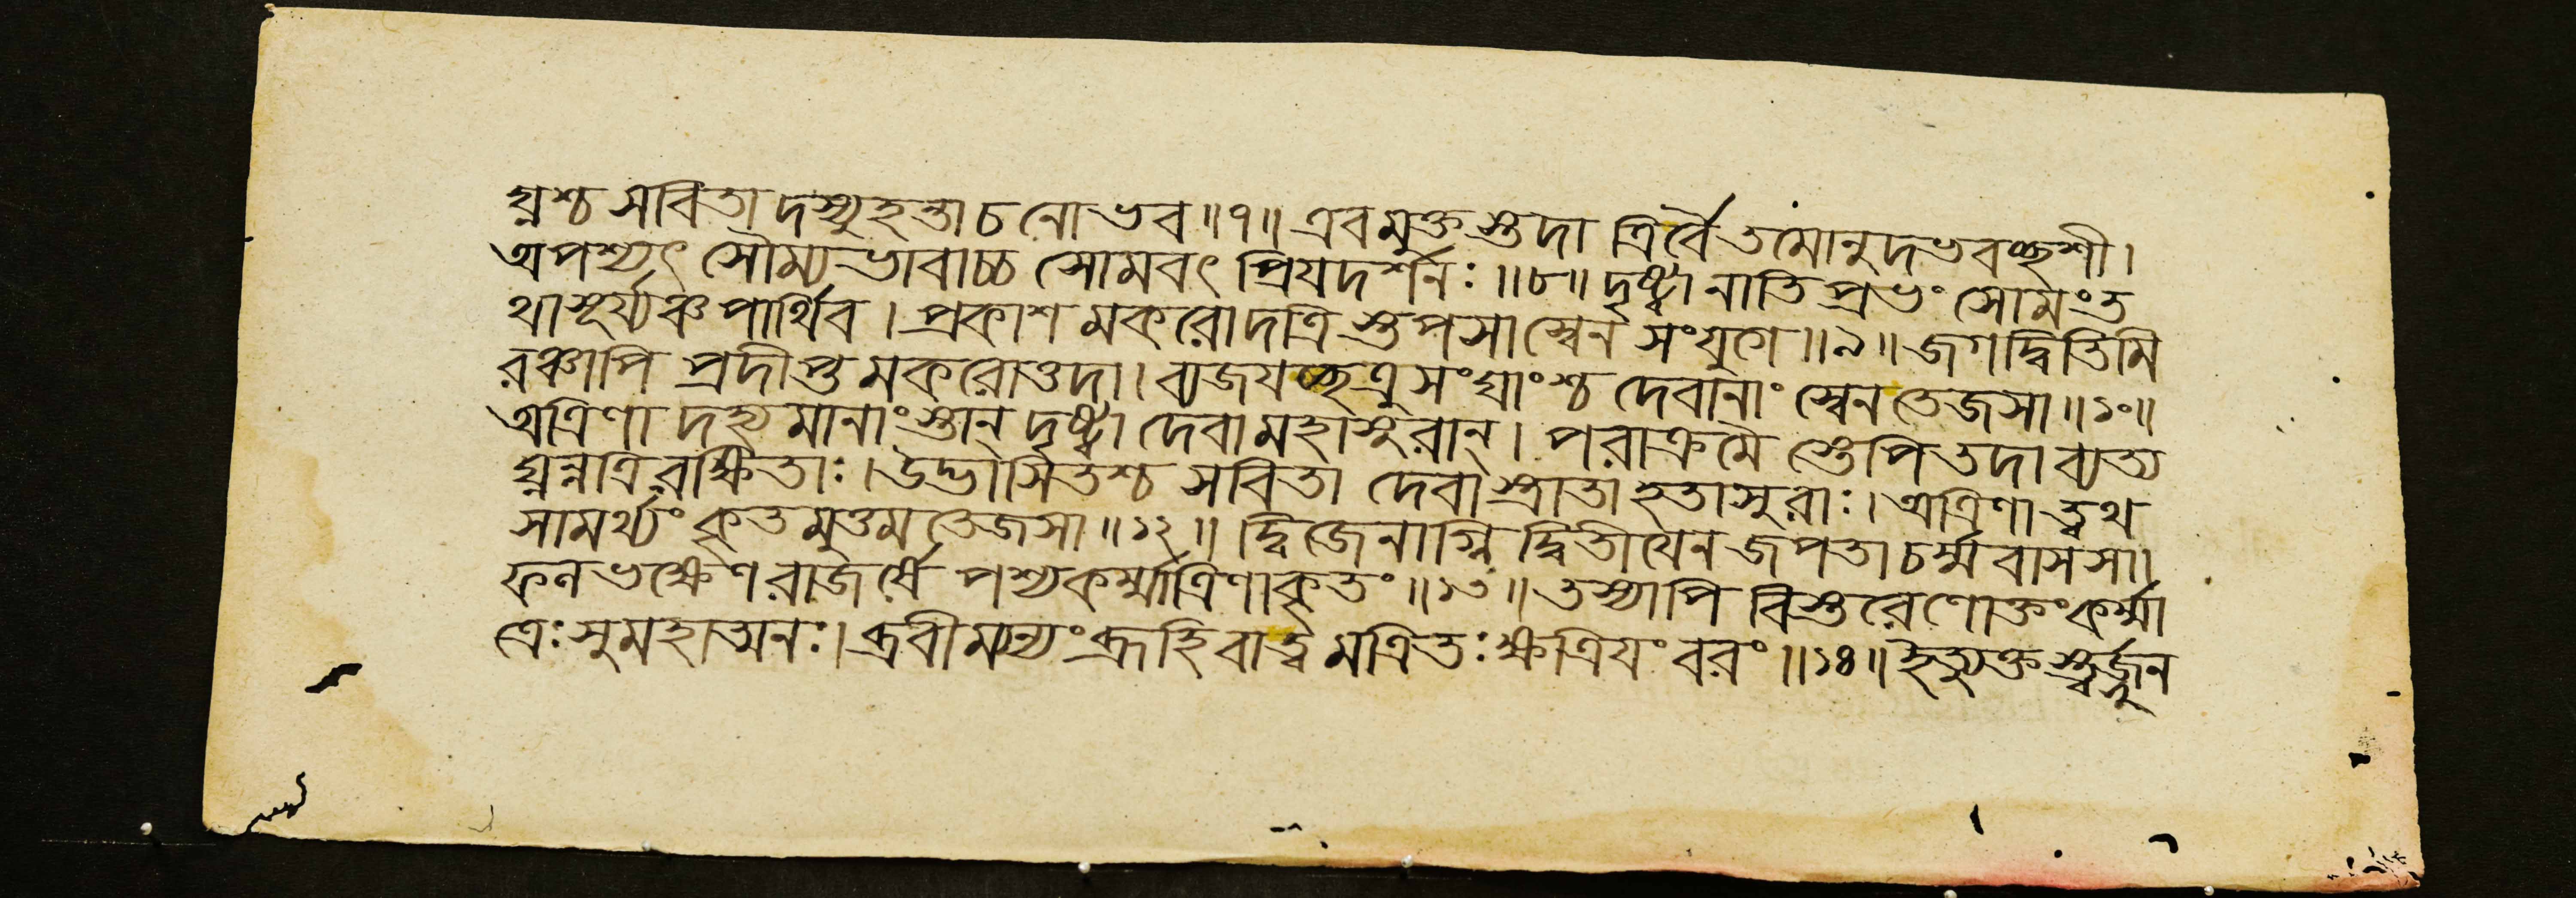 ঘ্নশ্চ সবিতা দস্যুহন্তা চ নো ভব॥৭॥ এবমুক্তস্তদা ত্রির্বৈ তমোনুদভবচ্ছশী।
অপশ্যৎ সৌম্যভাবাচ্চ সোমবৎ প্রিযদর্শনঃ॥৮॥ দৃষ্ট্বা নাতিপ্রভং সোমং ত
থা সূর্য্যঞ্চ পার্থিব। প্রকাশমকরোদত্রিস্তপসা স্বেন সংযুগে॥৯॥ জগদ্বিতিমি
রঞ্চাপি প্রদীপ্তমকরোত্তদা। ব্যজযচ্ছত্রুসংঘাংশ্চ দেবানাং স্বেন তেজসা॥১০॥
অত্রিণা দহ্যমানাংস্তান্ দৃষ্ট্বা দেবা মহাসুরান্। পরাক্রমৈস্তেপি তদা ব্যত্য
ঘ্নন্নত্রিরক্ষিতাঃ। উদ্ভাসিতশ্চ সবিতা দেবাস্ত্রাতা হতাসুরাঃ। অত্রিণা ত্বথ
সামর্থ্যং কৃতমুত্তমতেজসা॥১২॥ দ্বিজেনাগ্নিদ্বিতীযেন জপতা চর্ম্মবাসসা।
ফলভক্ষেণ রাজর্ষে পশ্য কর্ম্মাত্রিণা কৃতং॥১৩॥ তস্যাপি বিস্তরেণোক্তং কর্ম্মা
ত্রেঃ সুমহাত্মনঃ। ব্রবীম্যন্যং ব্রূহি বা ত্বমত্রিতঃ ক্ষত্রিযং বরং॥১৪॥ ইত্যুক্তস্ত্বর্জ্জুন